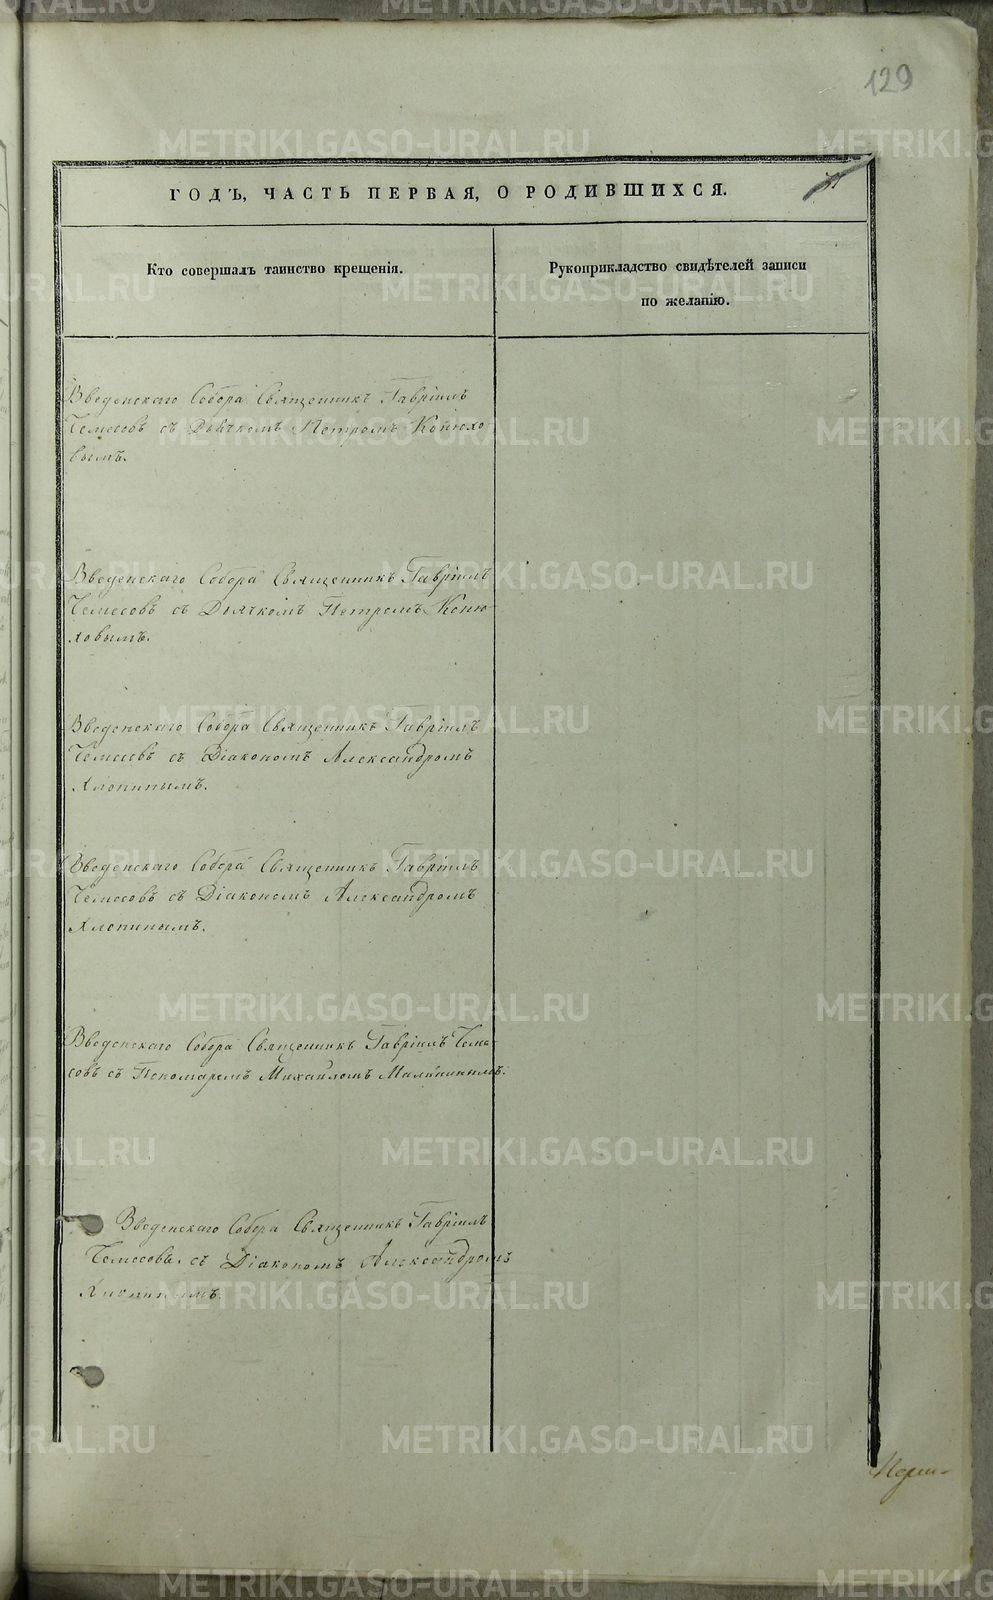 129
ГОДЪ, ЧАСТЬ ПЕРВАЯ, О РОДИВШИХСЯ.
Кто совершалъ таинство крещенія.
Рукоприкладство свидѣтелей записи
по желанію.
Введенскаго Собора Священникъ Гавріилъ
Чемесовъ съ Дьячкомъ Петромъ Конюхо
вымъ.
Введенскаго Собора Священникъ Гавріилъ
Чемесовъ съ Дьячкомъ Петромъ Коню
ховымъ.
Введенскаго Собора Священникъ Гавріилъ
Чемесовъ съ Діакономъ Александромъ
Хлопинымъ.
Введенскаго Собора Священникъ Гавріилъ
Чемесовъ съ Діакономъ Александромъ
Хлопинымъ.
Введенскаго Собора Священникъ Гавріилъ Чеме-
совъ съ Пономаремъ Михайломъ Малининымъ.
Введенскаго Собора Священникъ Гавріилъ
Чемесовъ съ Діакономъ Александромъ
Хлопинымъ.
METRIKI.GASO-URAL.RU